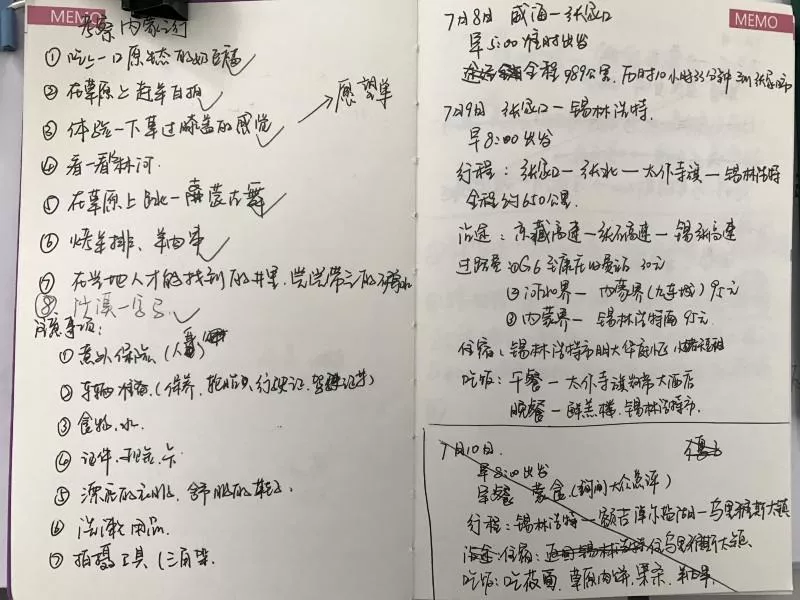 MEMO
内蒙之行
① 吃上一口原生态的奶豆腐
② 在草原上赶羊自拍
③ 体验一下草过膝盖的感觉
愿望单
④ 看一看林河.
⑤ 在草原上跳一曲蒙古舞
⑥ 烤羊排、羊肉串
⑦ 在当地人才能找到的井里,尝尝带
⑧
注意事项:
① 意外保险(人身)
② 车辆准备(保养、轮胎、行驶证、驾驶证等)
③ 食物、水.
④ 证件、现金、卡
⑤ 漂亮的衣服,舒服的鞋子.
⑥ 洗漱用品.
⑦ 拍摄工具(三角架.
MEMO
7月8日 威海—张家口
早5:00准时出发
全程989公里,历时10小时35分钟到张家口市
7月9日 张家口—锡林浩特.
早8:00出发
行程:张家口—张北—太仆寺旗—锡林浩特
全程约650公里.
沿途:京藏高速—张石高速—锡张高速
过路费①G6至康庄收费站 30元
②河北界—内蒙界(九连城)95元
③内蒙界—锡林浩特南95元
住宿:锡林浩特市明大华庭
吃饭:午餐—太仆寺旗大酒店
晚餐—鲜羔楼.锡林浩特市.
7月10日.
早8:00出发
早餐 蒙食(大众点评)
行程:锡林浩特—额吉淖尔盐湖—乌里雅斯太镇
住宿:住乌里雅斯太镇
吃饭:吃莜面,草原肉饼,果茶,